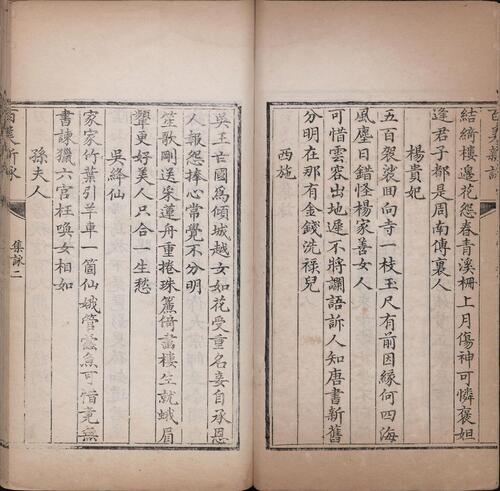 百美新詠
結綺樓邊花怨春青溪柵上月傷神可憐褒妲
逢君子都是周南傳裏人
楊貴妃
五百袈裟回向寺一枝玉尺有前因緣何四海
風塵日錯怪楊家善女人
可惜雲容出地遲不將讕語訴人知唐書新舊
分明在那有金錢洗祿兒
西施
吳王亡國爲傾城越女如花受重名妾自承恩
人報怨捧心常覺不分明
笙歌剛送采蓮舟重捲珠簾倚畫樓生就蛾眉
顰更好美人只合一生愁
吳絳仙
家家竹葉引羊車一箇仙娥管可惜竟無
書諫獵六宮枉喚女相如
孫夫人
百美新詠 集詠二